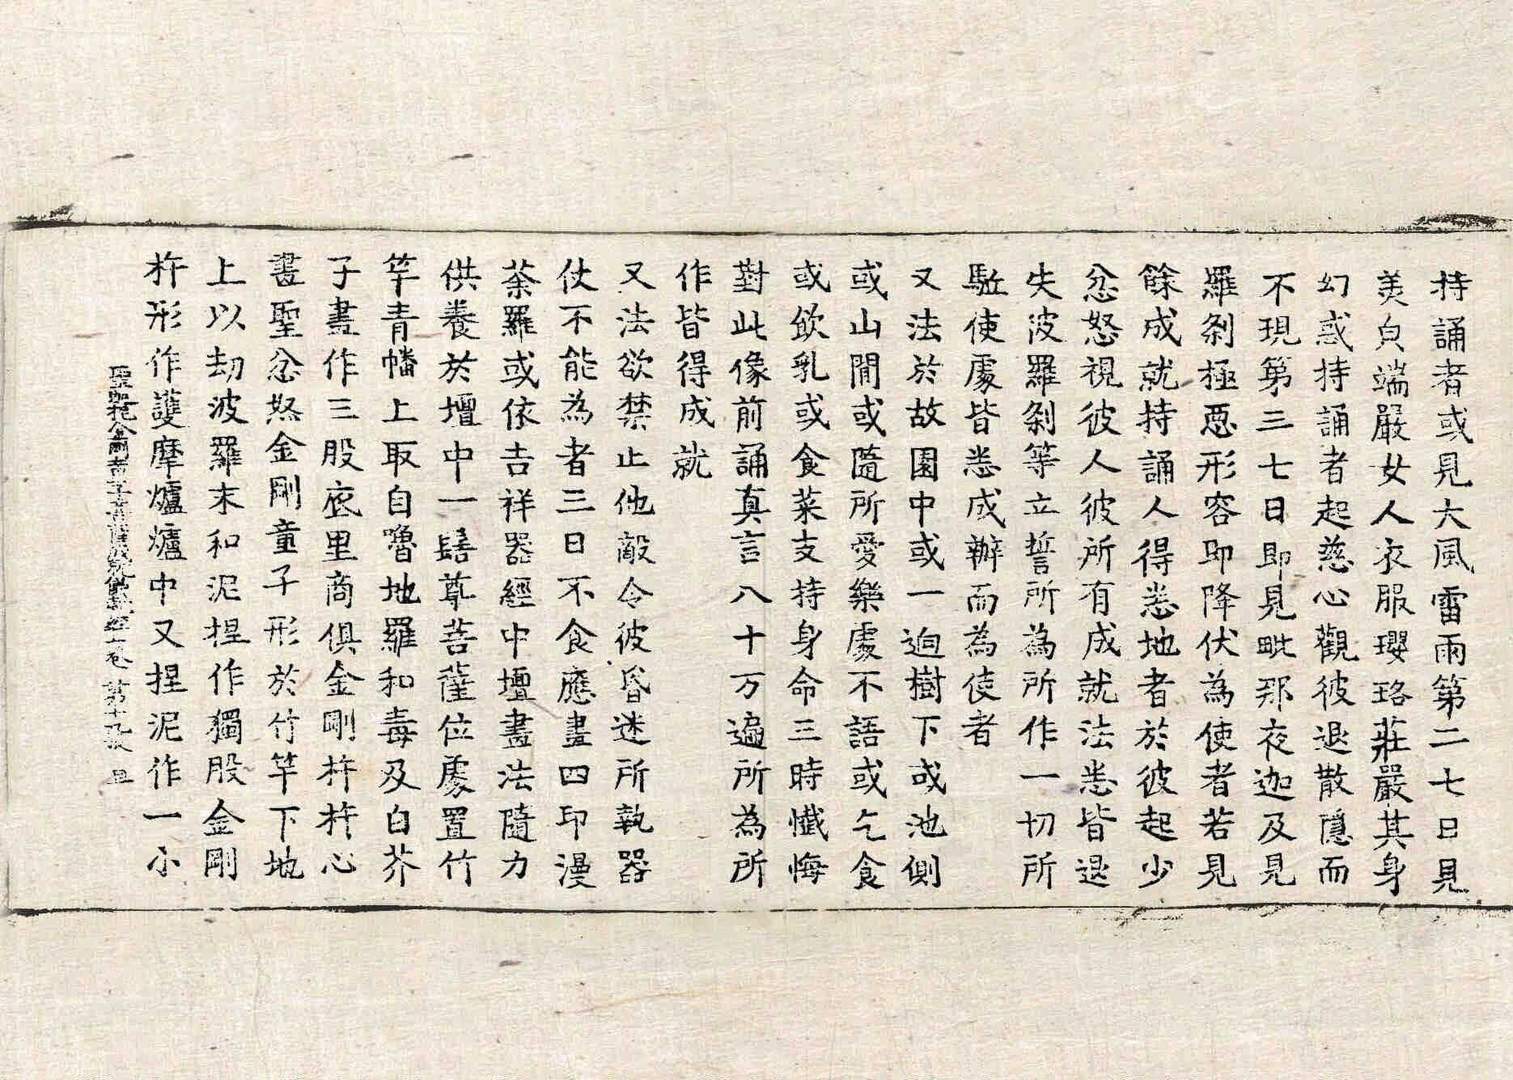 持誦者或見大風雷雨第二七日見
美皃端嚴女人衣服瓔珞莊嚴其身
幻惑持誦者起慈心觀彼退散隱而
不現第三七日即見毗那夜迦及見
羅剎極惡形容即降伏為使者若見
餘成就持誦人得悉地者於彼起少
忿怒視彼人彼所有成就法悉皆退
失波羅剎等立誓所為所作一切所
駈使處皆悉成辦而為使者
又法於故園中或一逈樹下或池側
或山間或隨所愛樂處不語或乞食
或飲乳或食菜支持身命三時懺悔
對此像前誦真言八十万遍所為所
作皆得成就
又法欲禁止他敵令彼昏迷所執器
仗不能為者三日不食應畫四印漫
荼羅或依吉祥器經中壇畫法隨力
供養於壇中一髻尊菩薩位處置竹
竿青幡上取自嚕地羅和毒及白芥
子畫作三股底里商俱金剛杵杵心
畫聖忿怒金剛童子形於竹竿下地
上以劫波羅末和泥捏作獨股金剛
杵形作護摩爐爐中又捏泥作一小
聖迦抳金剛童子菩薩成就儀軌經卷